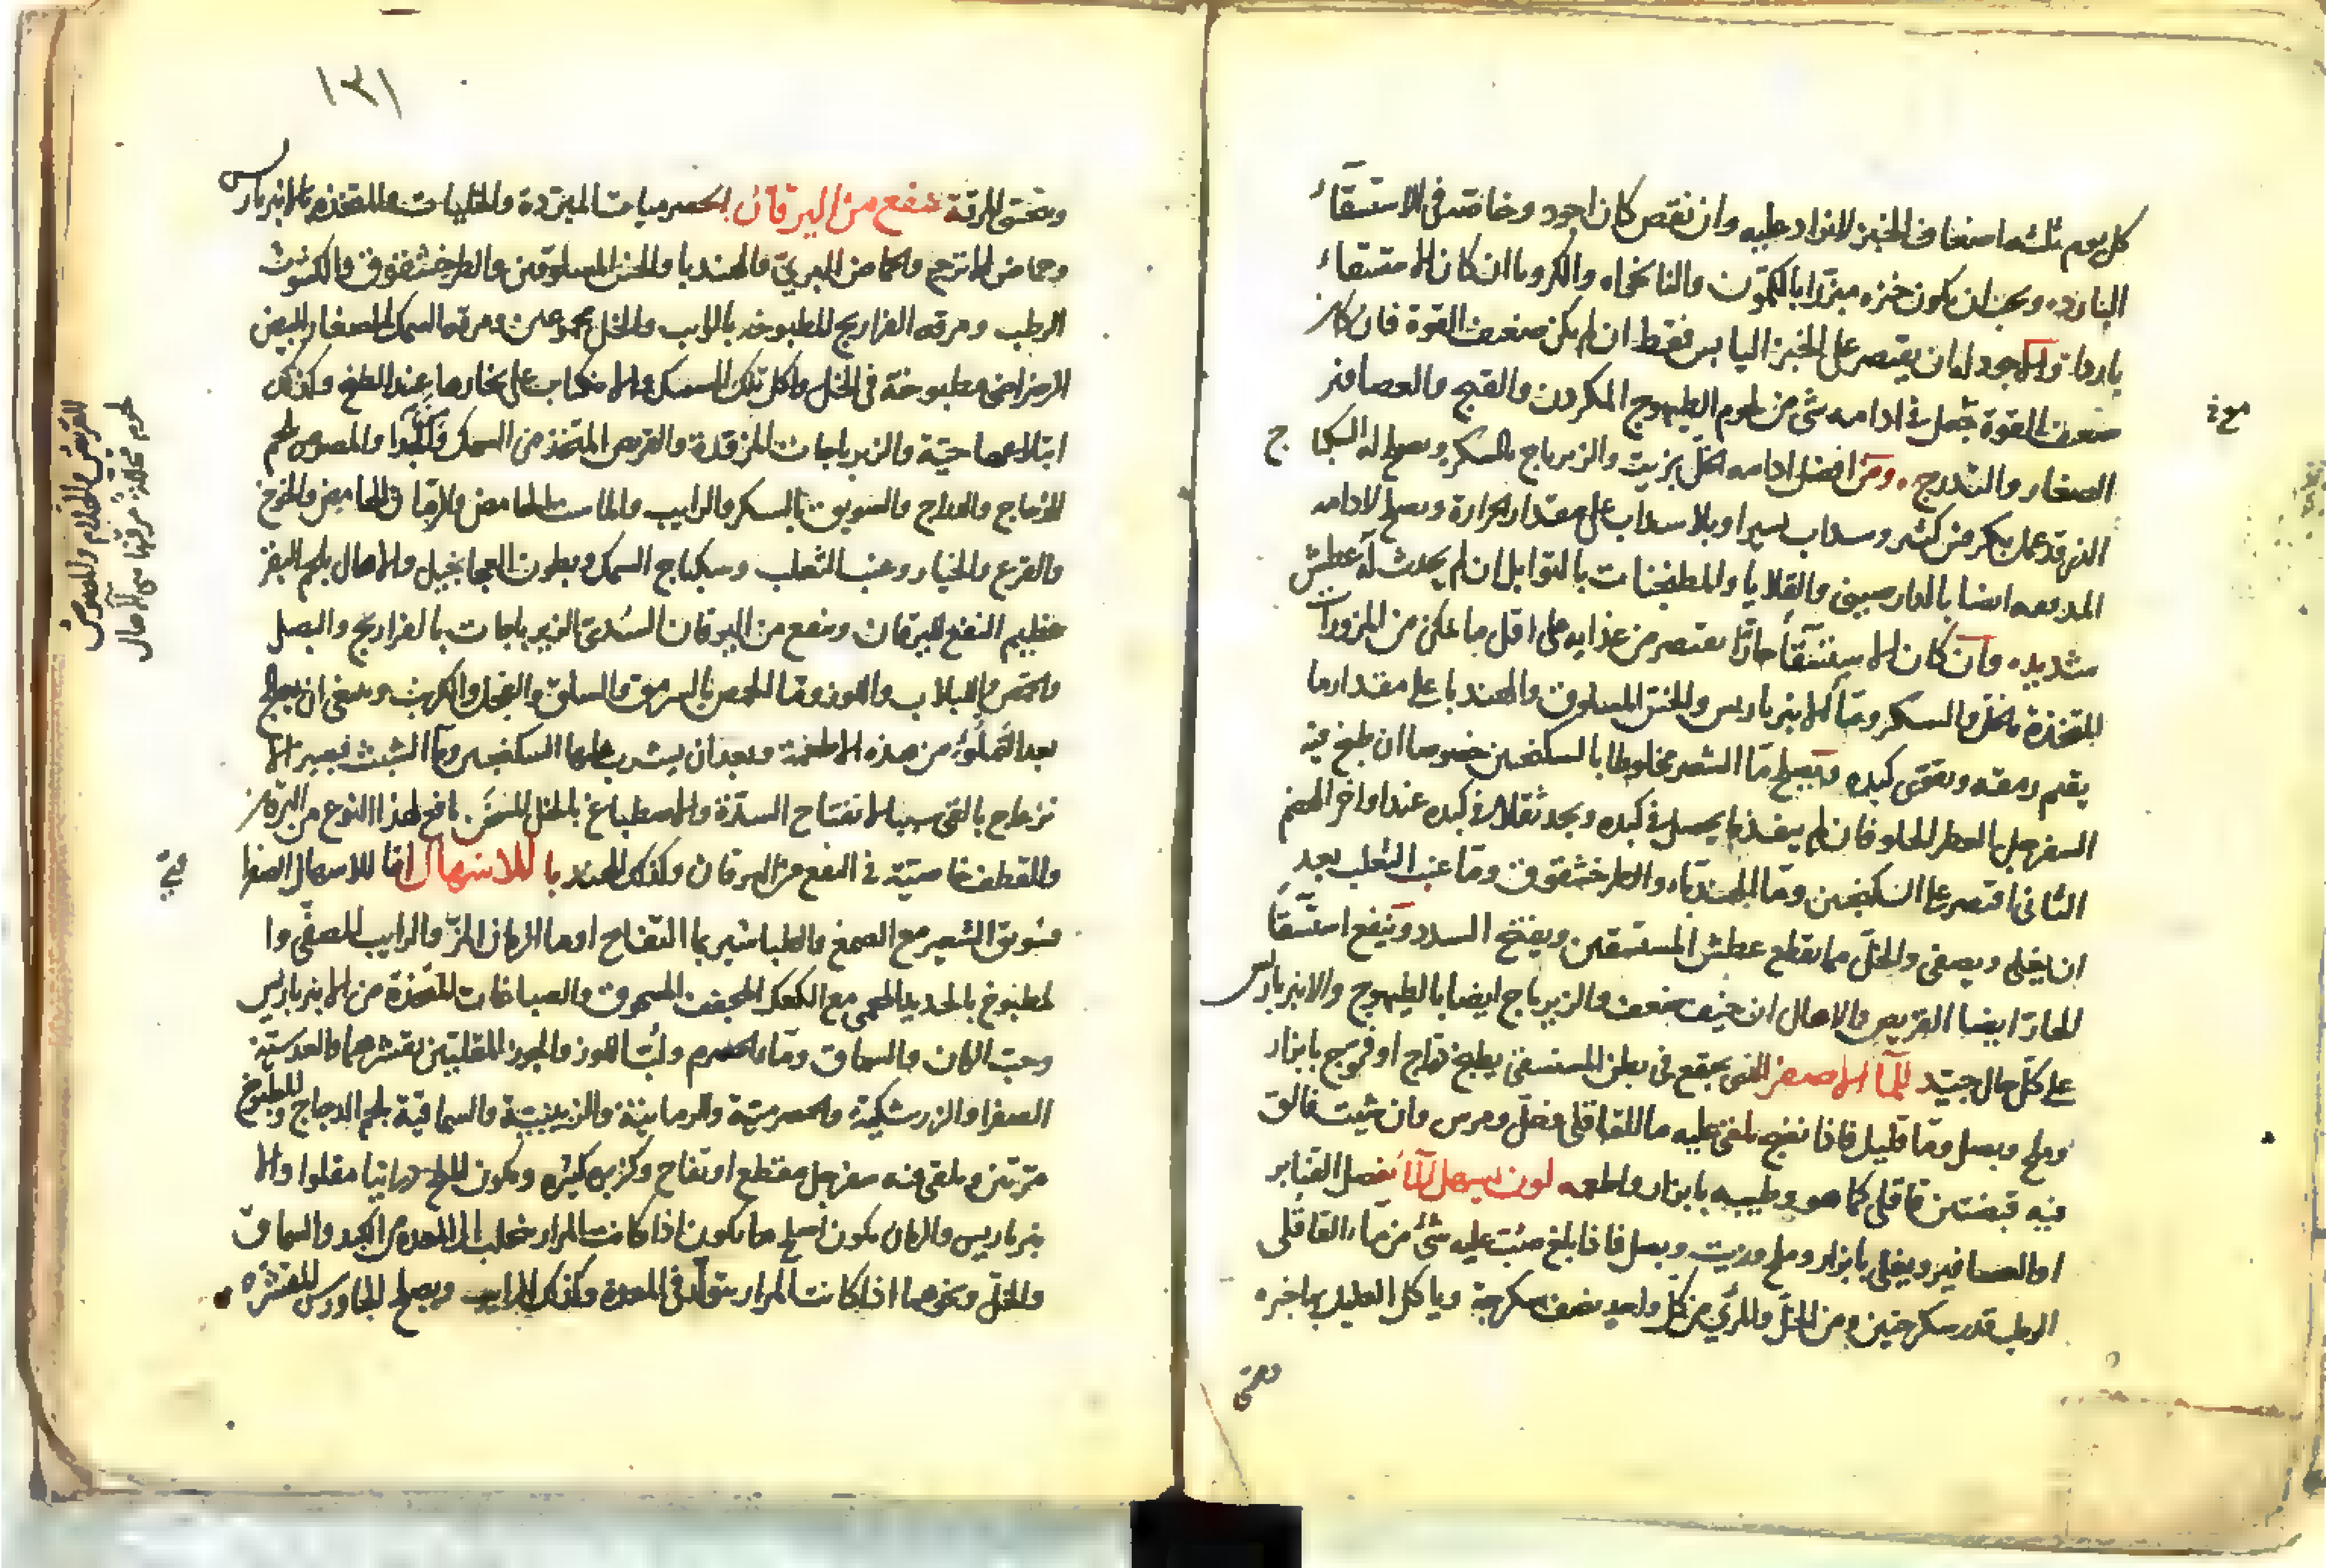 كل يوم ثلثه اضعاف الخبز لا نزاد عليه وان نقص كان اجود وخاصة فى الاستسقاء
البارد ويجب ان يكون خبزه مبزرا بالكمون والنانخاه والكرويا ان كان الاستسقاء
باردا والاجود له ان يقتصر على الخبز اليابس فقط ان لم يكن ضعيف القوة فان كان
ضعيف القوة جعل فى ادامه شى من لحوم الطيهوج المكردن والقبج والعصافير
الصغار والتدرج ومن افضل ادامه الخل بزيت والزيرباج بالسكر ويصلح له السكباج
الذى قد عمل بكرفس كثير وسداب يسير او بلا سداب على مقدار الحرارة ويصلح لادامه
ايضا بالدارصينى والقلايا والمطجنات بالتوابل ان لم يحدث له عطش
شديد وان كان الاستسقا حارا يقتصر من غذايه على اقل ما يمكن من المزورات
المتخذة بالخل والسكر وما الانبرباريس والخس المسلوق والهندبا على مقدار ما
يقيم رمقه ويقوى كبده ويصلح ما الشعير مخلوطا بالسكنجبين خصوصا ان طبخ فيه
السفرجل العطر الحلو فان لم ينفذ ما يحصل فى كبده ويجد ثقلا فى كبده عند اواخر الهضم
الثانى اقتصر على السكنجبين وما الهندباء والطرخشقوق وما عنب الثعلب بعد
ان يغلى ويصفى والخل مما يقطع عطش المستسقين ويفتح السدد وينفع استسقا
الحار ايضا القريص والاهال ان خيف ضعف والزيرباج ايضا بالطيهوج والانبرباريس
على كل حال جيد للما الاصفر الذى يجتمع فى بطن المستسقى يطبخ دراج او فروج بابزار
وملح وبصل وما قليل فاذا نضج يلقى عليه ما القاقلى وخل ومرى وان شيت فالق
فيه قبضتين قاقلى كما هو وطيبه بابزار واطعمه لون يسهل الما يفصل القنابر
او العصافير ويغلى بابزار وملح وزيت وبصل فاذا بلغ صببت عليه شئ من ماء القاقلى
الرطب قدر سكرجتين ومن الخل والمرى من كل واحد نصف سكرجة وياكل العليل بهاخبزه
١٣١
المرقة ينفع من اليرقان الحصرميات المبردة والهليات والمتخذه بالانبرباريس
وحماض الاترج والحماض البرى والهندبا والخس المسلوقين والطرخشقوق والكشوث
الرطب ومرقه الفراريج المطبوخه بالرايب والخل مجموعين ومرقه السمك الصغار البيض
الرضراضى مطبوخة فى الخل واكل تلك السمك والانكباب على بخارها عند الطبخ وكذلك
ابتلاعها حية والزيرباجات المزوقة والقريص المتخذ من السمك والمصوص لحم
الدجاج والدراج والسويق بالسكر والرايب والماست الحامض والرمان الحامض والخوخ
والقرع والخيار وعنب الثعلب وسكباج السمك وبطون العجاجيل والاهال بلحم البقر
عظيم النفع لليرقان وينفع من اليرقان السددى الزيرباجات بالفراريج والبصل
والحمص واللبلاب واللوز وما الحمص بالسرمق والسلق والفجل والكرنب وينبغى ان يعالج
بعد التملؤ من هذه الاطعمة وبعد ان يشرب عليها السكنجبين وما الشبث فيصير الا
نزعاج بالقى سببا لانفتاح السدة والاصطباغ بالخل نافع لهذا النوع من اليرقان
وللقطف خاصية فى النفع من اليرقان وكذلك الهندبا للاسهال اما للاسهال الصفرا
فسويق الشعير مع الصمغ والطباشير بما التفاح او ما الرمان المز والرايب المصفى وا
لمطبوخ بالحديد المحمى مع الكعك المجفف المسحوق والصباغات المتخذة من الانبرباريس
وحب الرمان والسماق وما الحصرم ولب اللوز والجوز المقليين بقشرهما والعدسية
الصفرا والزرشكية والحصرمية والرمانية والزبيبية والسماقية بلحم الدجاج والمطبوخ
مرتين ويلقى فيه سفرجل مقطع او تفاح وكزبره كثيرة ويكون الملح درانيا مقلوا والا
نبرباريس والرمان يكون اصلح ما يكون اذا كانت المرار ينحلب الى المعده من الكبد والسماق
والخل ونحوهما اذا كانت المرار يتولد فى المعدة وكذلك الرايب ويصلح الجاورس المقشره
القريص والهلام والمصوص